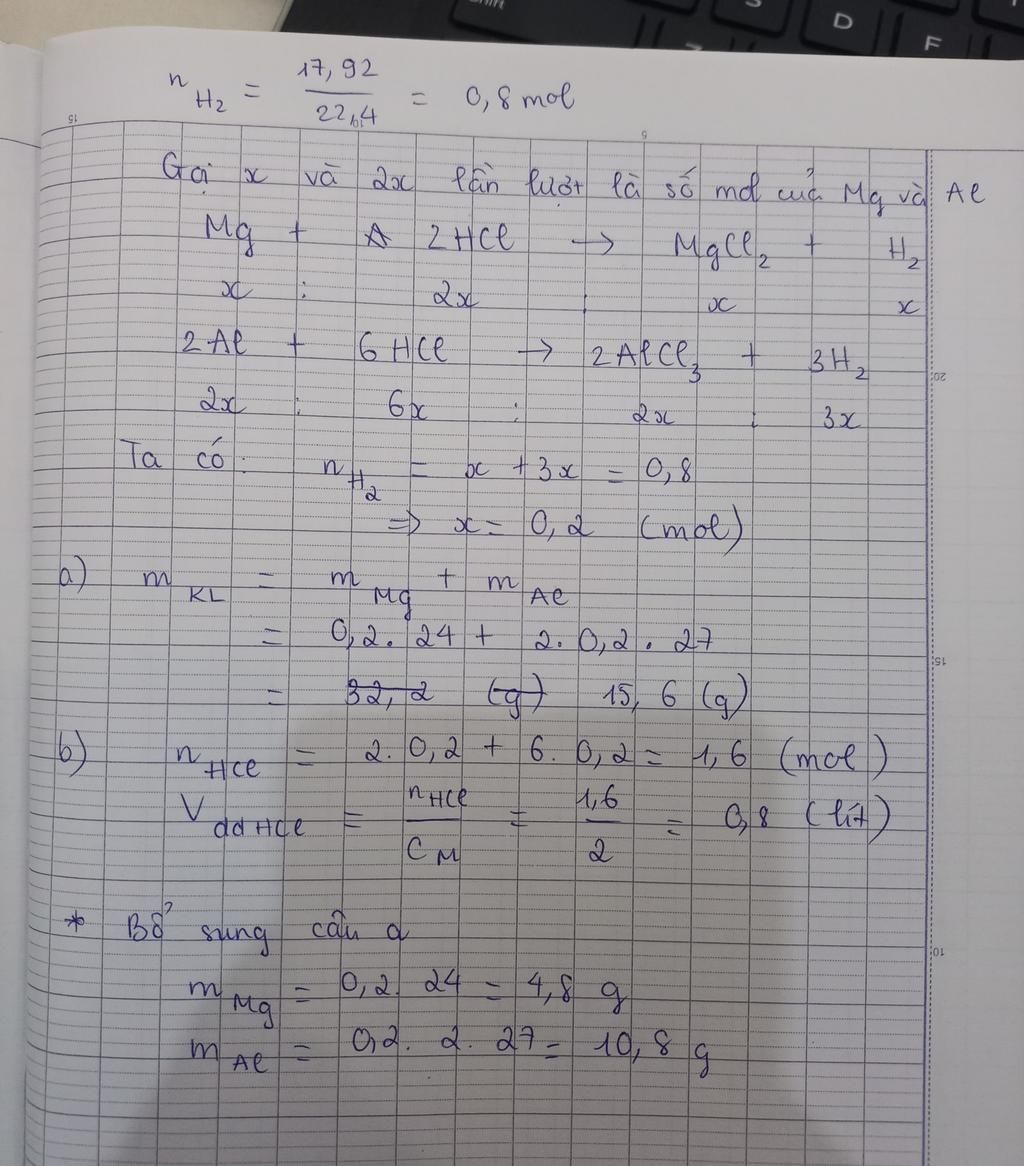 n H₂ = 17,92 / 22,4 = 0,8 mol
Gọi x và 2x lần lượt là số mol của Mg và Al
Mg + A 2HCl → MgCl₂ + H₂
x : 2x : x x
2Al + 6HCl → 2AlCl₃ + 3H₂
2x : 6x : 2x : 3x
Ta có: n H₂ = x + 3x = 0,8
⇒ x = 0,2 (mol)
a) m KL = m Mg + m Al
= 0,2. 24 + 2. 0,2. 27
= 32,2 (g) 15,6 (g)
b) n HCl = 2. 0,2 + 6. 0,2 = 1,6 (mol)
V dd HCl = n HCl / C M = 1,6 / 2 = 0,8 (lít)
* Bổ sung câu a
m Mg = 0,2. 24 = 4,8 g
m Al = 0,2. 2. 27 = 10,8 g